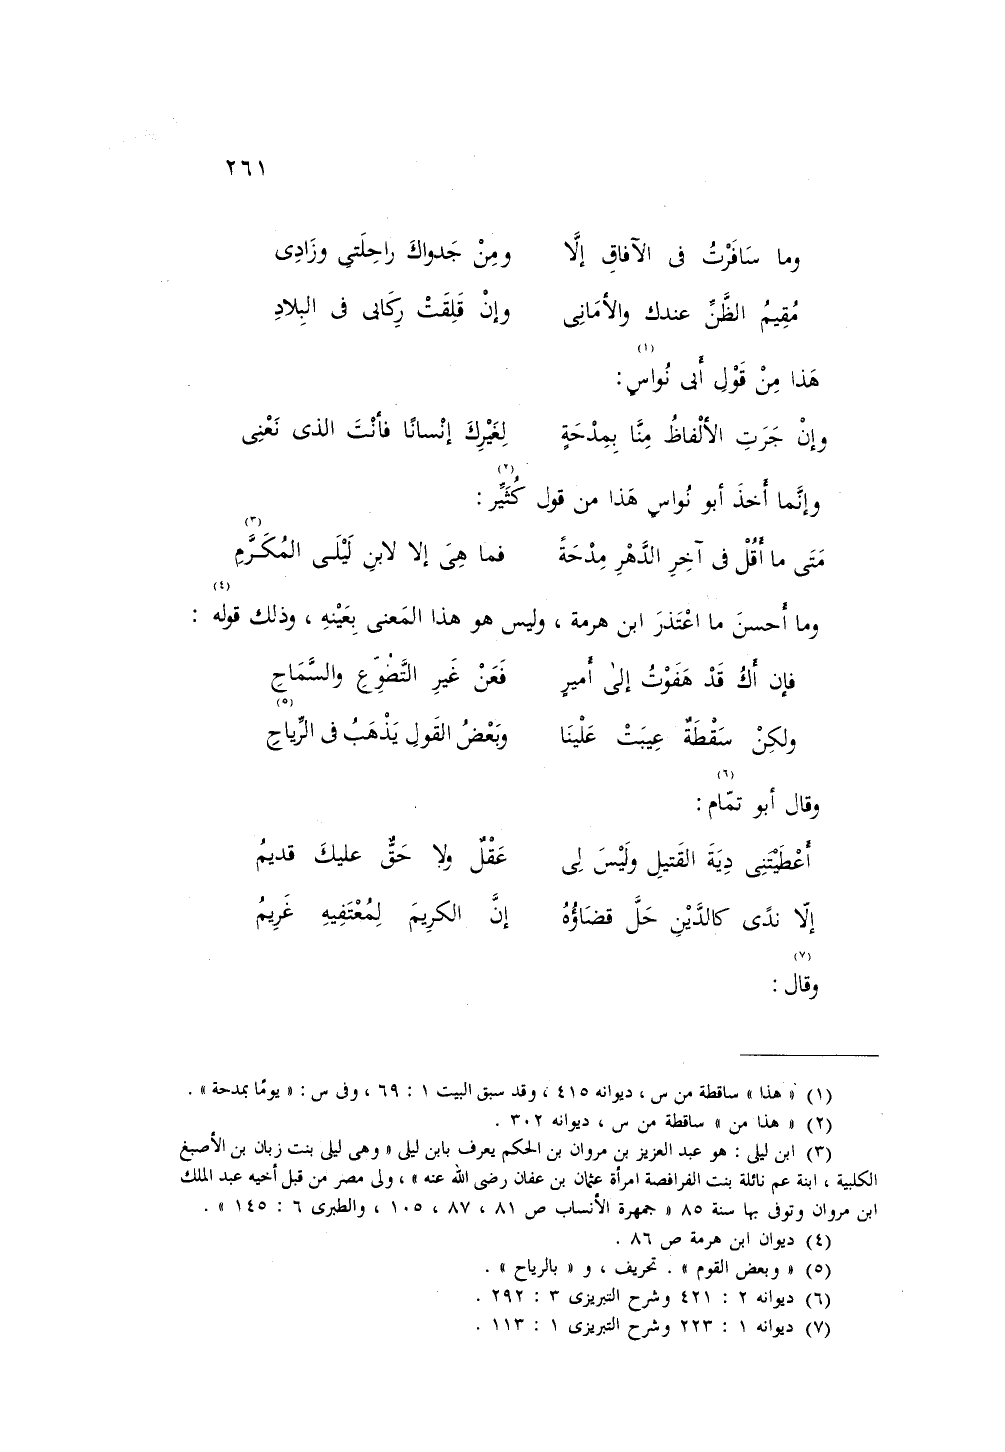 ٢٦١
وما سَافَرْتُ فى الآفاقِ إلَّا ومِنْ جَدواكَ راحِلَتي وزَادِى
مُقِيمُ الظَّنِّ عندك والأمَانِى وإنْ قَلِقَتْ رِكَابى فى البِلادِ
هَذا مِنْ قَوْلِ أَبى نُواسٍ(١) :
وإنْ جَرَتِ الألْفاظُ مِنَّا بِمِدْحَةٍ لِغَيْرِكَ إنْسانًا فأنْتَ الذى نَعْنِى
وإنَّما أَخذَ أبو نُواسٍ هَذا من قول كُثَيِّر(٢) :
مَتَى ما أَقُلْ فى آخِرِ الدَّهْرِ مِدْحَةً فما هِىَ إلا لابنِ لَيْلَى المُكَرَّمِ(٣)
وما أَحسنَ ما اعْتَذرَ ابن هرمة ، وليس هو هذا المَعنى بِعَيْنِهِ ، وذلك قوله(٤) :
فإن أَكُ قَدْ هَفَوْتُ إلىٰ أَميرٍ فَعَنْ غَيرِ التَّطَوُّعِ والسَّمَاحِ
ولكِنْ سَقْطَةٌ عِيبَتْ عَلَيْنَا وبَعْضُ القَولِ يَذْهَبُ فى الرِّياحِ(٥)
وقال أبو تمّام(٦) :
أَعْطَيْتَنِى دِيَةَ القَتيلِ ولَيْسَ لِى عَقْلٌ ولا حَقٌّ عليكَ قديمُ
إلّا ندًى كالدَّيْنِ حَلَّ قضَاؤُهُ إنَّ الكريمَ لِمُعْتَفِيهِ غَرِيمُ
وقال(٧) :
(١) « هذا » ساقطة من س ، ديوانه ٤١٥ ، وقد سبق البيت ١ : ٦٩ ، وفى س : « يومًا بمدحة » .
(٢) « هذا من » ساقطة من س ، ديوانه ٣٠٢ .
(٣) ابن ليلى : هو عبد العزيز بن مروان بن الحكم يعرف بابن ليلى « وهى ليلى بنت زبان بن الأصبغ
الكلبية ، ابنة عم نائلة بنت الفرافصة امرأة عثمان بن عفان رضى الله عنه » ، ولى مصر من قبل أخيه عبد الملك
ابن مروان وتوفى بها سنة ٨٥ « جمهرة الأنساب ص ٨١ ، ٨٧ ، ١٠٥ ، والطبرى ٦ : ١٤٥ » .
(٤) ديوان ابن هرمة ص ٨٦ .
(٥) « وبعض القوم » . تحريف ، و « بالرياح » .
(٦) ديوانه ٢ : ٤٢١ وشرح التبريزى ٣ : ٢٩٢ .
(٧) ديوانه ١ : ٢٢٣ وشرح التبريزى ١ : ١١٣ .